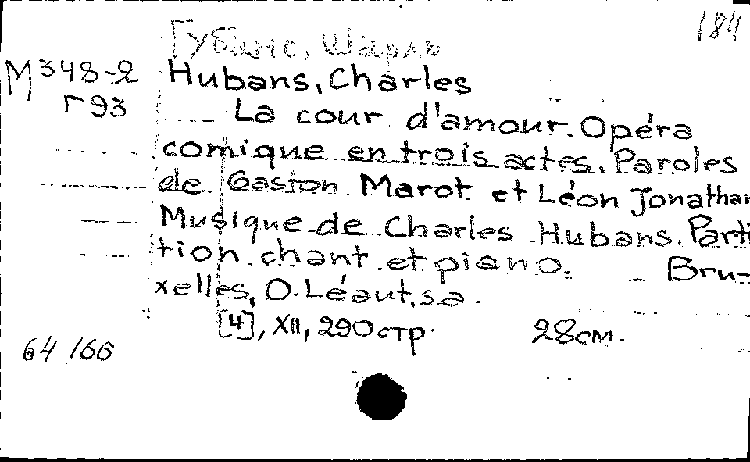 184
Губанс, Шарль
М348-2
Г93
Hubans, Charles
La cour d'amour. Opéra
comique en trois actes. Paroles
de Gaston Marot et Léon Jonathan
Musique de Charles Hubans. Parti
tion chant et piano. Bru-
xelles, O. Léaut, s.a.
[4], XII, 290 стр. 28 см.
64/66